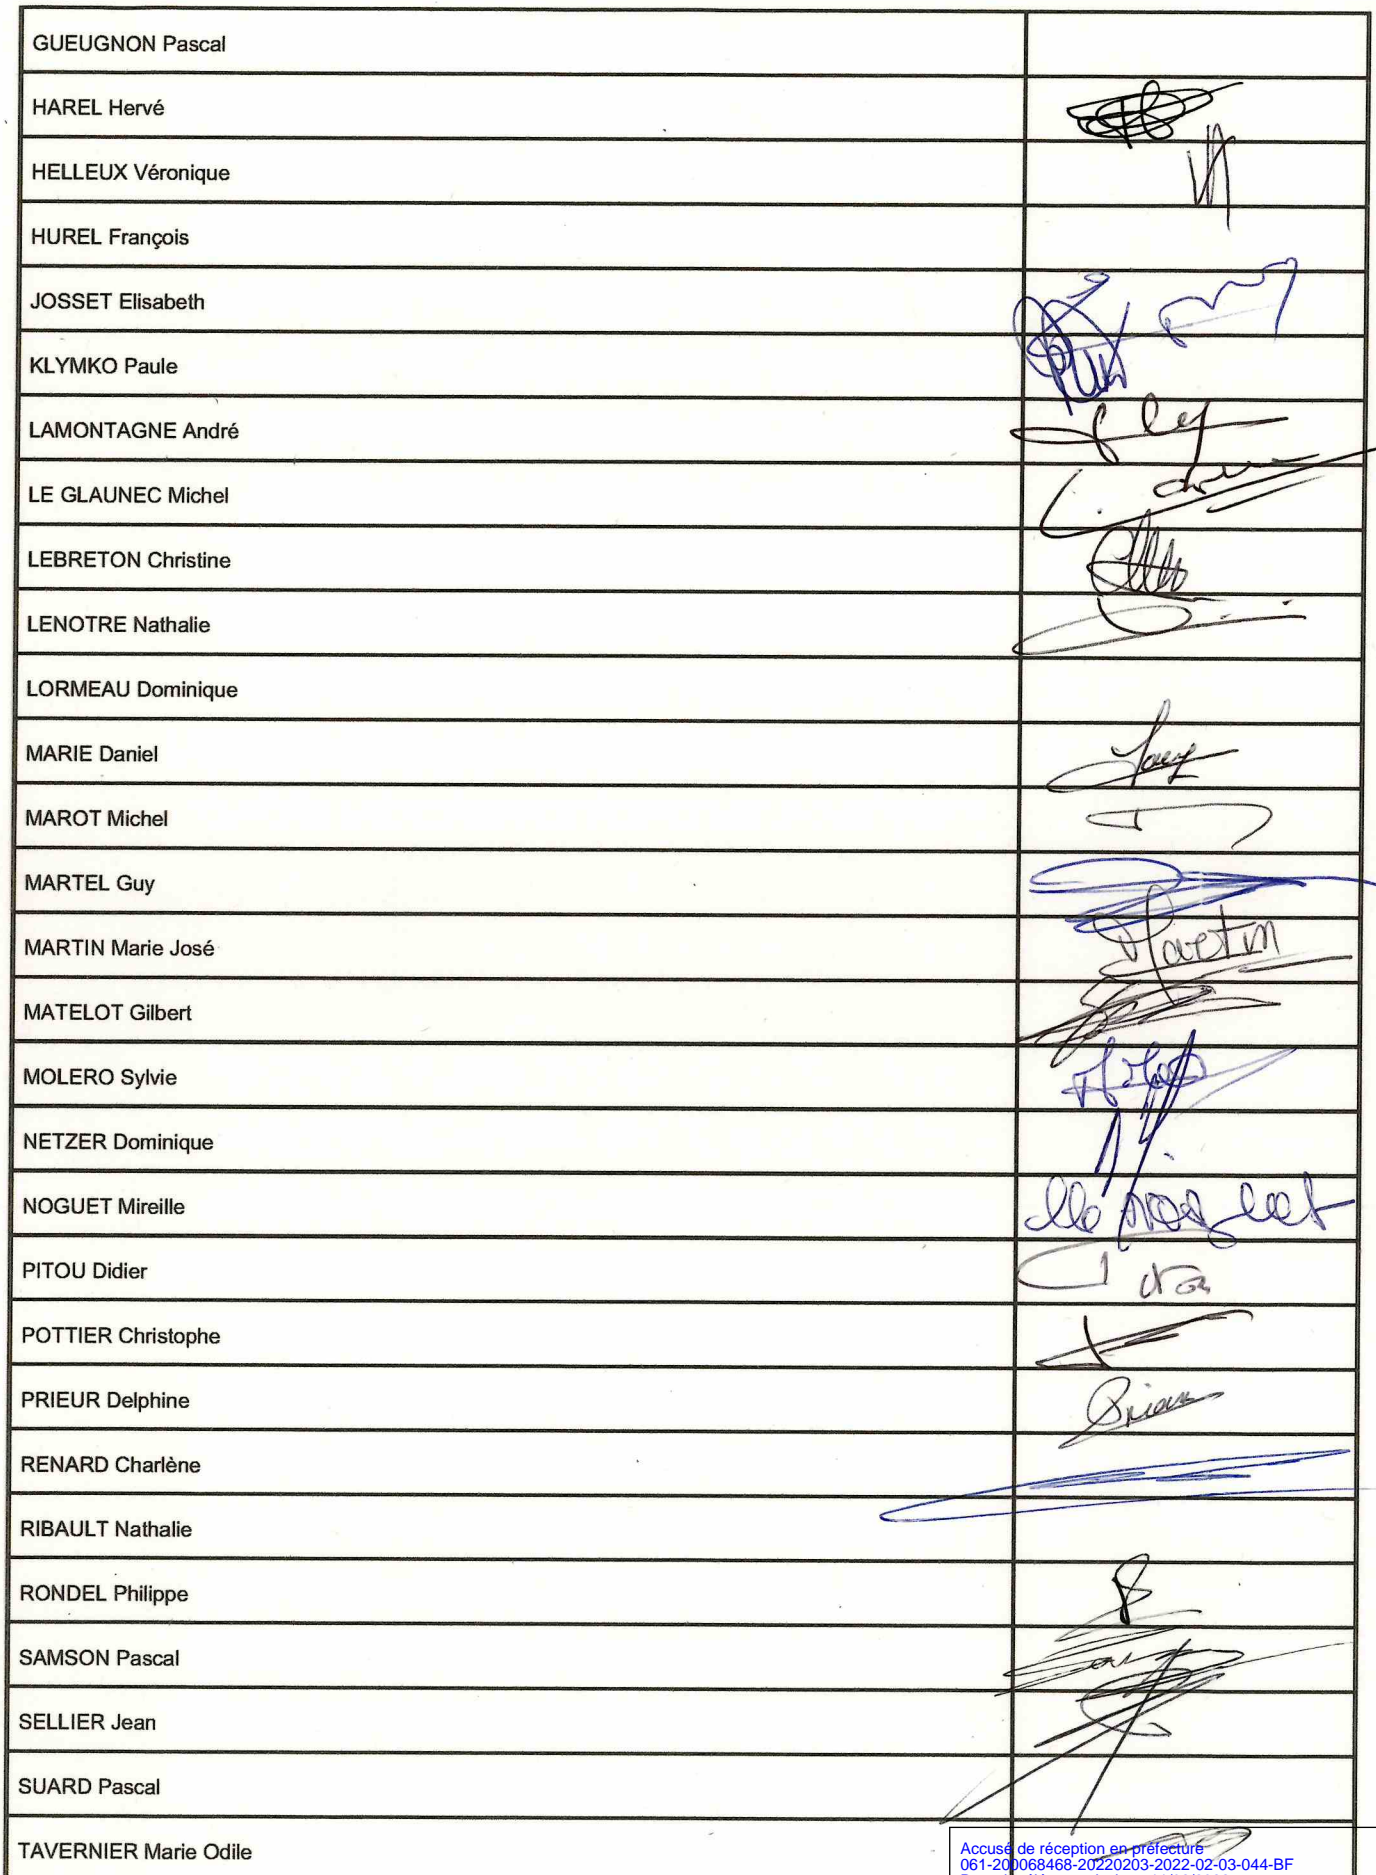 GUEUGNON Pascal
HAREL Hervé
HELLEUX Véronique
HUREL François
JOSSET Elisabeth
KLYMKO Paule
LAMONTAGNE André
LE GLAUNEC Michel
LEBRETON Christine
LENOTRE Nathalie
LORMEAU Dominique
MARIE Daniel
MAROT Michel
MARTEL Guy
MARTIN Marie José
Martin
MATELOT Gilbert
MOLERO Sylvie
NETZER Dominique
NOGUET Mireille
PITOU Didier
POTTIER Christophe
PRIEUR Delphine
RENARD Charlène
RIBAULT Nathalie
RONDEL Philippe
SAMSON Pascal
SELLIER Jean
SUARD Pascal
TAVERNIER Marie Odile
Accusé de réception en préfecture
061-200068468-20220203-2022-02-03-044-BF